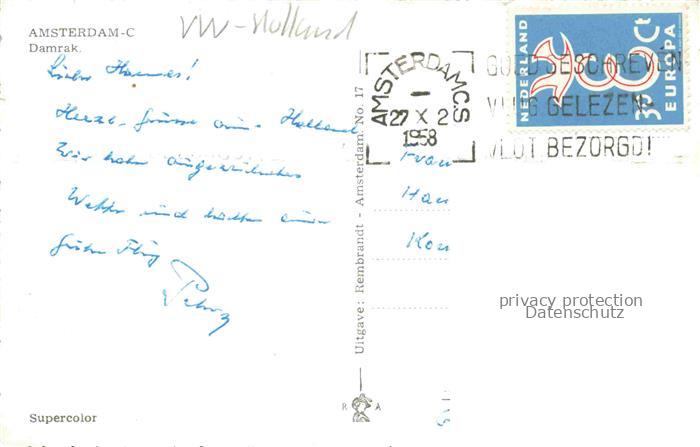 VW-Holland
AMSTERDAM-C
Damrak.
Lieber Hannes!
Herzl. Grüsse aus Holland
Wir haben ausgezeichnetes
Wetter und hatten einen
guten Flug
Supercolor
Uitgave: Rembrandt - Amsterdam. No. 17
R A
AMSTERDAM CS
27 X 2
1958
GOED GESCHREVEN
VLUG GELEZEN-
VLOT BEZORGD!
NEDERLAND
30 Ct
EUROPA
Frau
Han
Kon
privacy protection
Datenschutz